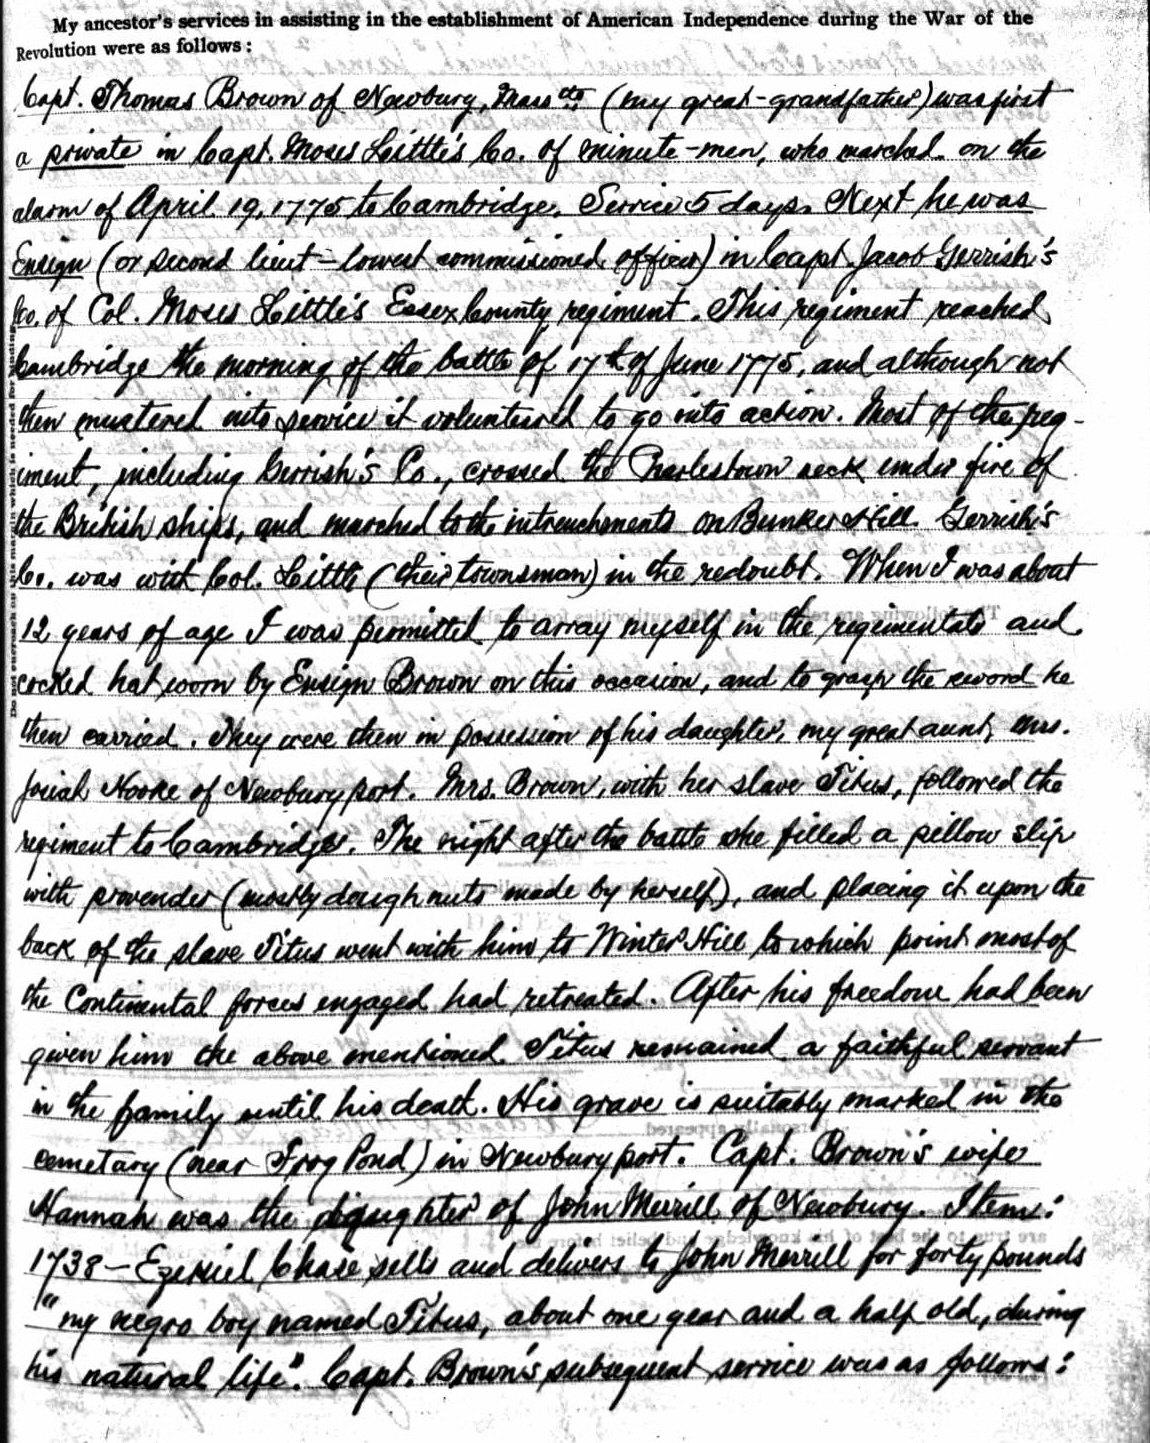 My ancestor's services in assisting in the establishment of American Independence during the War of the
Revolution were as follows:
Capt. Thomas Brown of Newbury, Masstts (my great-grandfather) was first
a private in Capt. Moses Little's Co. of minute-men, who marched on the
alarm of April 19, 1775 to Cambridge. Service 5 days. Next he was
Ensign (or second lieut - lowest commissioned officer) in Capt. Jacob Gerrish's
Co. of Col. Moses Little's Essex County regiment. This regiment reached
Cambridge the morning of the battle of 17th of June 1775, and although not
then mustered into service it volunteered to go into action. Most of the reg-
iment, including Gerrish's Co., crossed the Charlestown neck under fire of
the British ships, and marched to the intrenchments on Bunker Hill. Gerrish's
Co. was with Col. Little (their townsman) in the redoubt. When I was about
12 years of age I was permitted to array myself in the regimentals and
cocked hat worn by Ensign Brown on this occasion, and to grasp the sword he
then carried. They were then in possession of his daughter, my great aunt, Mrs.
Josiah Hooke of Newburyport. Mrs. Brown, with her slave Titus, followed the
regiment to Cambridge. The night after the battle she filled a pillow slip
with provender (mostly doughnuts made by herself), and placing it upon the
back of the slave Titus went with him to Winter Hill to which point most of
the Continental forces engaged had retreated. After his freedom had been
given him the above mentioned Titus remained a faithful servant
in the family until his death. His grave is suitably marked in the
cemetary (near Frog Pond) in Newburyport. Capt. Brown's wife
Hannah was the daughter of John Merrill of Newbury. Item:
1738 - Ezekiel Chase sells and delivers to John Merrill for forty pounds
"my negro boy named Titus, about one year and a half old, during
his natural life". Capt. Brown's subsequent service was as follows:
Do not encroach on this margin which is needed for binding